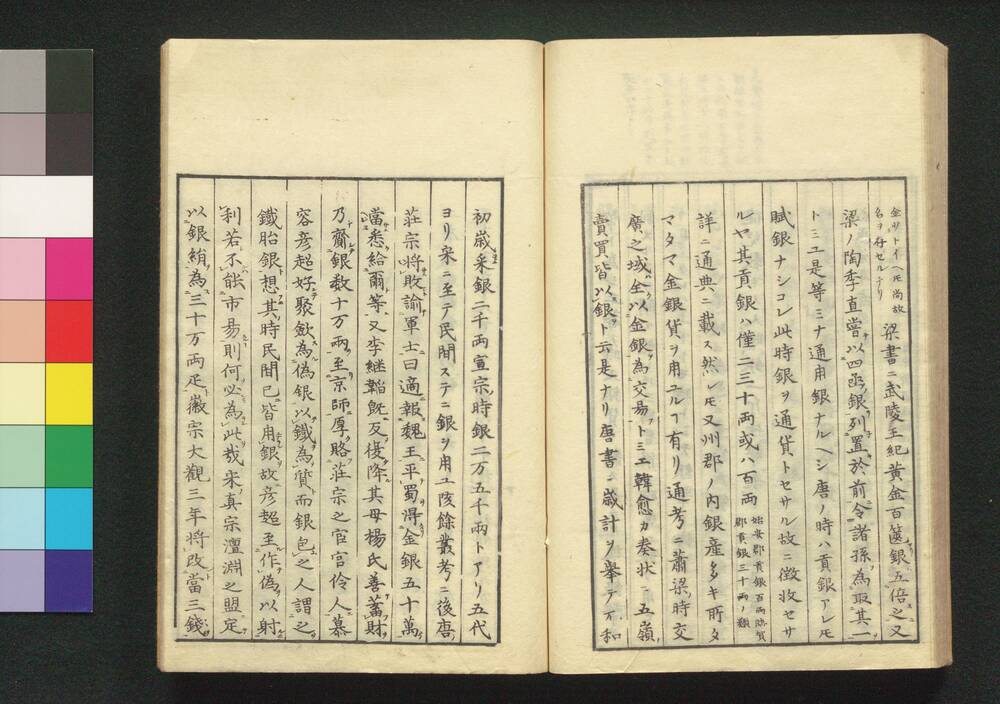 金サトイヘモ尚故
名ヲ存セルナリ
梁書ニ武陵王紀黄金百篋銀五倍之又
梁ノ陶季直嘗以四函銀列置於前令諸孫為取其一
トミユ是等ミナ通用銀ナルヘシ唐ノ時ハ貢銀アレモ
賦銀ナシコレ此時銀ヲ通貨トセサル故ニ徴收セサ
ルヤ其貢銀ハ僅二三十両或ハ百両
始安郡貢銀百両臨賀
郡貢銀三十両ノ類
詳ニ通典ニ載ス然レモ又州郡ノ内銀産多キ所タ
マタマ金銀貨ヲ用ユルヿ有リ通考ニ蕭梁時交
廣之域全以金銀為交易トミエ韓愈カ奏状ニ五嶺
賣買皆以銀ト云是ナリ唐書ニ歳計ヲ舉テ不和
初歳采銀二千両宣宗時銀二万五千両トアリ五代
ヨリ宋ニ至テ民間ステニ銀ヲ用ユ陔餘叢考ニ後唐
荘宗将敗諭軍士曰適報魏王平蜀得金銀五十萬
當悉給爾等又李継韜既反復降其母楊氏善蓄財
乃齎銀数十万両至京師厚賂荘宗之宦官伶人慕
容彦超好聚歛為偽銀以鐵為質而銀包之人謂之
鐵胎銀想其時民間已皆用銀故彦超至作偽以射
利若不能市易則何必為此哉宋真宗澶淵之盟定
以銀絹為三十万両疋徽宗大觀三年将改當三錢